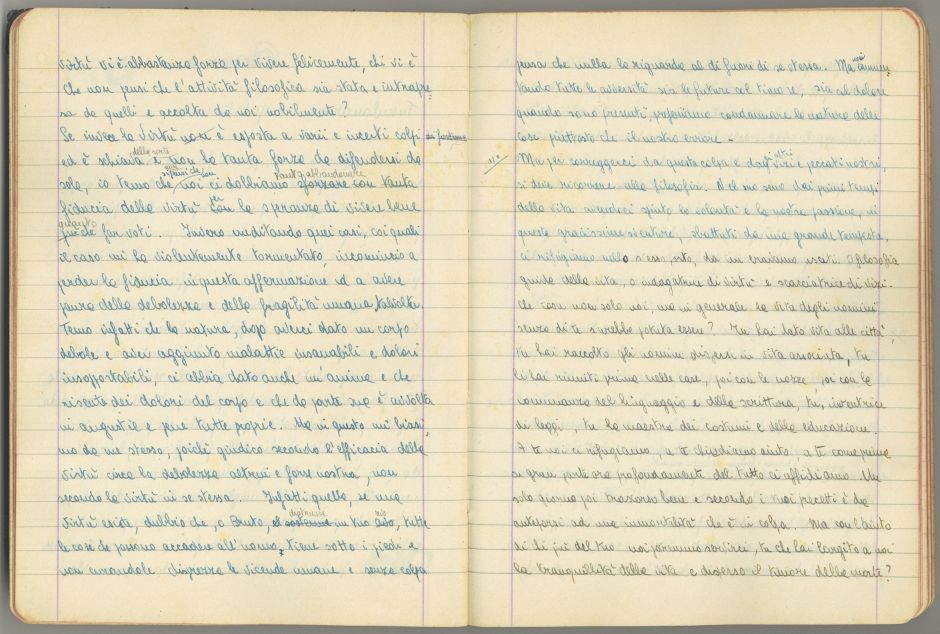 virtù vi è abbastanza forza per vivere felicemente, chi vi è
che non pensi che l'attività filosofica sia stata e intrapre-
sa da quelli e accolta da noi nobilmente?
Se invece la virtù non è esposta a varii e incerti colpi
ed è schiava della sorte e non ha tanta forza da difendersi da
sola, io temo che noi ci dobbiamo sforzare con tanta
fiducia della virtù con la speranza di vivere bene
far voti. Invero meditando quei casi, coi quali
il caso mi ha violentemente tormentato, incomincio a
perder la fiducia in questa affermazione ed a aver
paura della debolezza e della fragilità umana talvolta.
Temo infatti che la natura, dopo averci dato un corpo
debole e aver aggiunto malattie insanabili e dolori
insopportabili, ci abbia dato anche un'anima e che
risente dei dolori del corpo e che da parte sua è avvolta
in angustie e pene tutte proprie. Ma in questo mi biasi-
mo da me stesso, poichè giudico secondo l'efficacia della
virtù circa la debolezza altrui e forse nostra, non
secondo la virtù in se stessa. Infatti quella, se una
virtù esiste, dubbio che, o Bruto, distrusse il tuo zio, tutte
le cose che possono accadere all'uomo, tiene sotto i piedi e
non curandole disprezza le vicende umane e senza colpa
pensa che nulla la riguarda al di fuori di se stessa. Ma noi aumen-
tando tutte le avversità sia le future col timore, sia col dolore
quando sono presenti, preferiamo condannare la natura delle
cose piuttosto che il nostro errore.
Ma per correggerci da questa colpa e dagli altri vizi e peccati nostri,
si deve ricorrere alla filosofia. Nel suo seno dai primi tempi
della vita avendoci spinto la volontà e la nostra passione, in
queste gravissime sventure, sbattuti da una grande tempesta,
ci rifugiamo nello stesso porto, da cui eravamo usciti. O filosofia
guida della vita, o indagatrice di virtù e scacciatrice di vizi.
Che cosa non solo noi, ma in generale la vita degli uomini
senza di te sarebbe potuta essere? Tu hai dato vita alle città,
tu hai raccolto gli uomini dispersi in vita associata, tu
li hai riuniti prima nelle case, poi con le nozze poi con la
comunanza del linguaggio e della scrittura, tu, inventrice
di leggi, tu la maestra dei costumi e della educazione.
A te noi ci rifugiamo, a te chiediamo aiuto, a te come prima
in gran parte ora profondamente del tutto ci affidiamo. Un
solo giorno poi trascorso bene e secondo i tuoi precetti è da
anteporsi ad una immortalità che è in colpa. Ma con l'aiuto
di chi più del tuo noi potremmo servirci, tu che hai largito a noi
la tranquillità della vita e disperso il timore della morte?